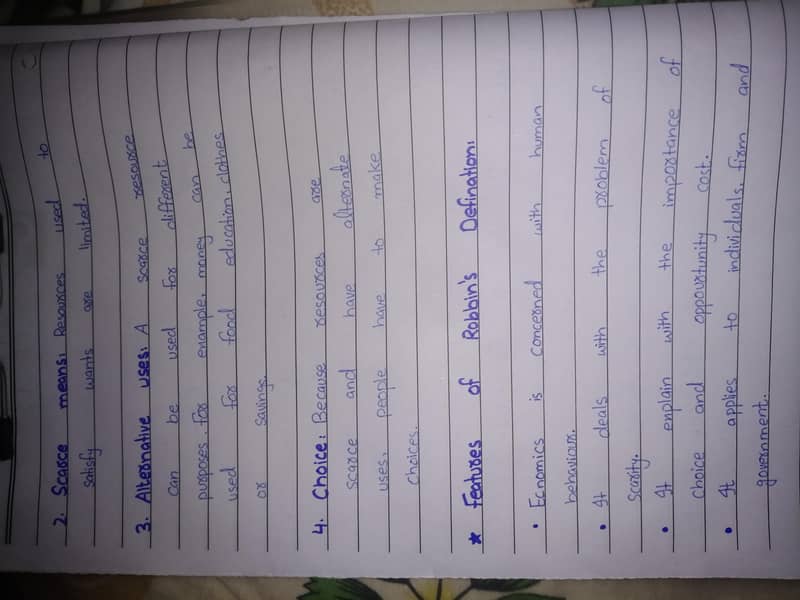 2. Scarce means: Resources used to
satisfy wants are limited.
3. Alternative uses: A scarce resource
can be used for different
purposes. for enample, money can be
used for food education, clothes
or savings.
4. Choice: Because resources are
scarce and have alternate
uses, people have to make
choices.
* Features of Robbin's Defination:
• Ecnomics is concerned with human
behaviour.
• It deals with the problem of
scarity.
• It enplain with the importance of
choice and oppourtunity cost.
• It applies to individuals, firm and
government.